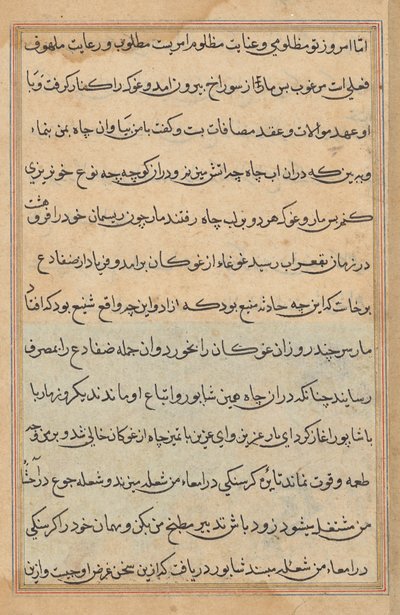 اما امروز تو مظلومی و عنایت مظلوم امریست مطلوب و رعایت ملهوف
فعلی است مرغوب پس مار از سوراخ بیرون آمد و غوک را کنار گرفت و با
او عهد موالات و عقد مصافات بست و گفت با من بیا و آن چاه بمن بنماء
و ببین که در آن آب چاه چه آتش میزنم و در آن کوچه بچه نوع خونریزی
کنم پس مار و غوک هر دو بر لب چاه رفتند مار چون ریسمان خود را فروهشت
در زمان بقعر آب رسید غوغاء از غوکان برآمد و فریاد از ضفادع
برخاست که این چه حادثه منیع بود که زاد و این چه واقع شنیع بود که افتاد
مار پس چند روز آن غوکان را بخورد و آن جمله ضفادع را بمصرف
رسانید چنانکه در آن چاه همین شاپور و اتباع او ماندند یکروز مار با
با شاپور آغاز کرد ای یار عزیز و ای عزیز با تمیز چاه از غوکان خالی شد و برمن وجه
طعمه و قوت نماند نایره گرسنگی در امعاء من شعله میزند و شعله جوع در احشاء
من مشتعل میشود زود باش تدبیر مطبخ من بکن و مهمان خود را گرسنگی
در امعاء من شعله میزند شاپور دریافت که ازین سخن غرض او چیست و ازین